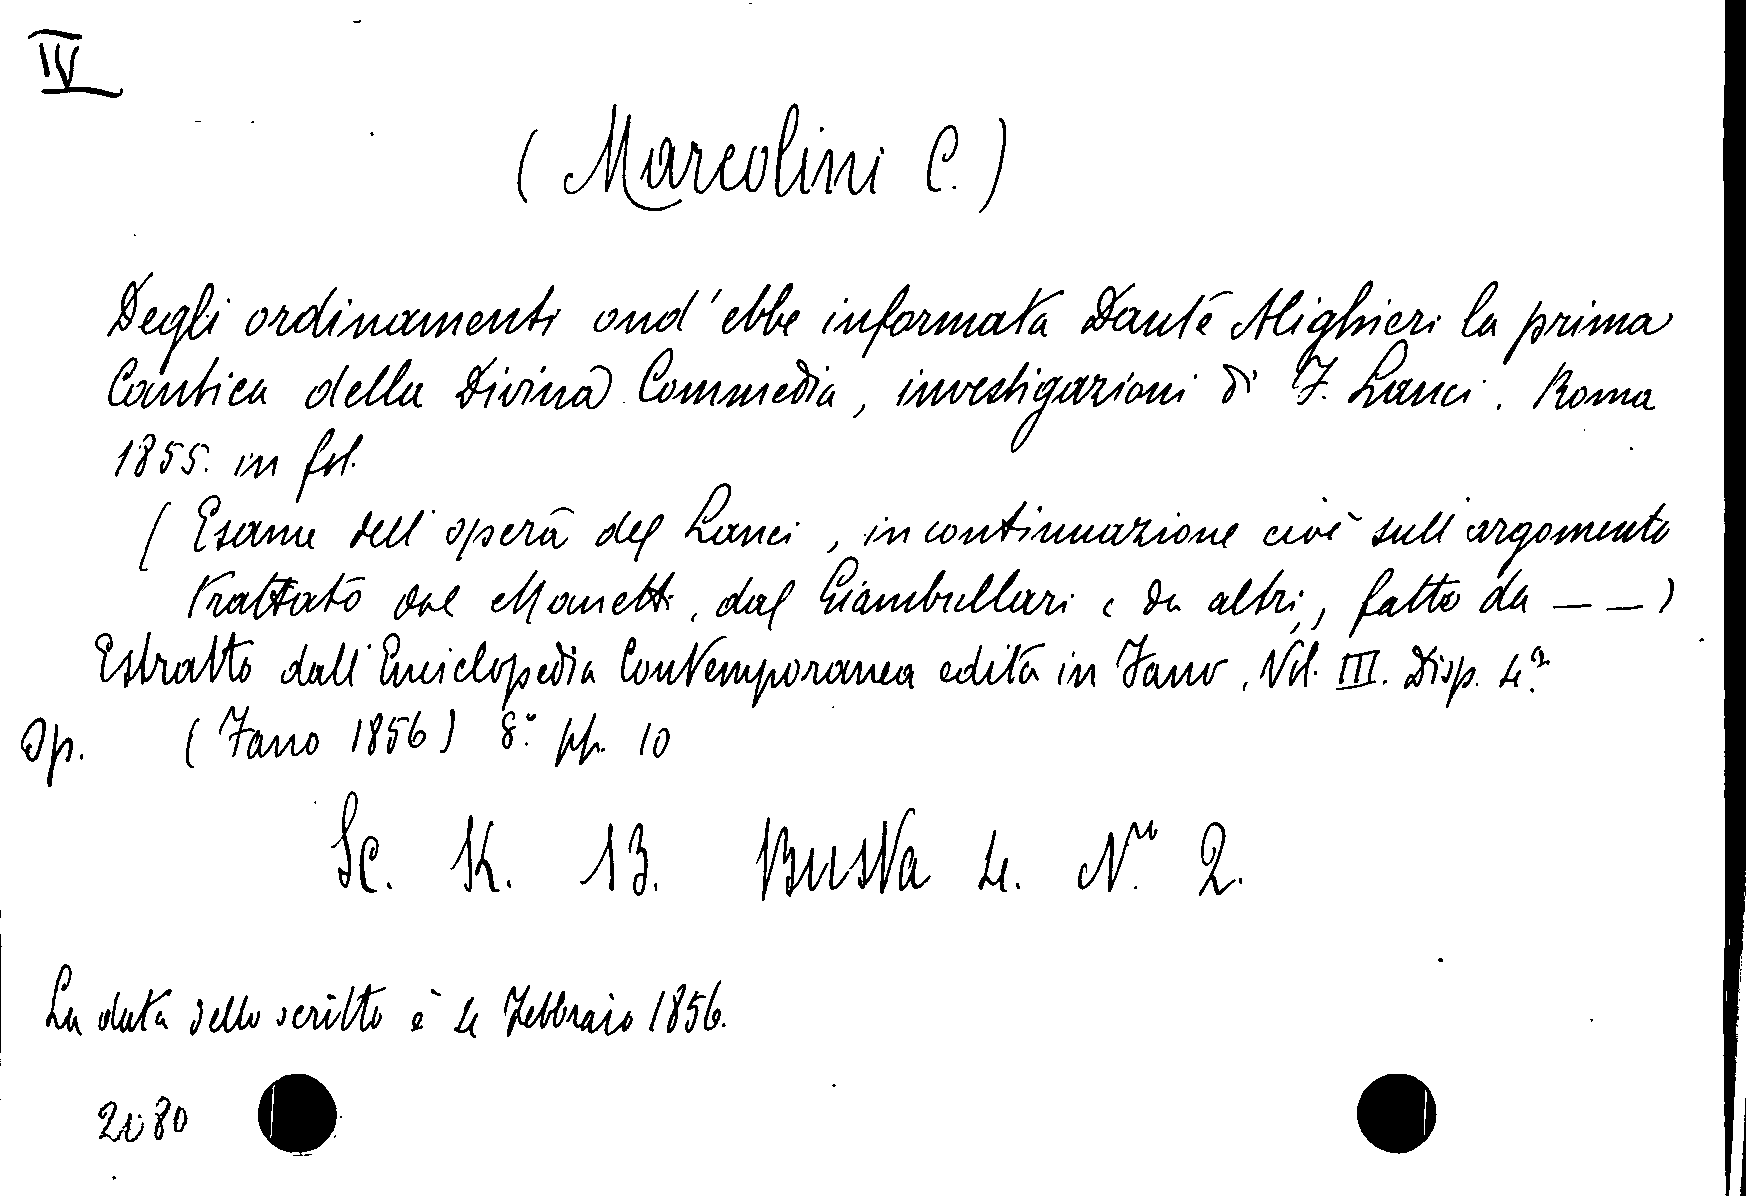 IV
(Marcolini C.)
Degli ordinamenti ond'ebbe informata Dante Alighieri la prima
Cantica della Divina Commedia, investigazioni di F. Lanci. Roma
1855. in fol.
(Esame dell'opera del Lanci, in continuazione cioè sull'argomento
trattato dal Manetti, dal Giambullari e da altri, fatto da — —)
Estratto dall'Enciclopedia Contemporanea edita in Fano, Vol. III. Disp. 4ª
Op. (Fano 1856) 8.º pp. 10
Sc. K. 13. Busta 4. Nº 2.
La data dello scritto è 4 Febbraio 1856.